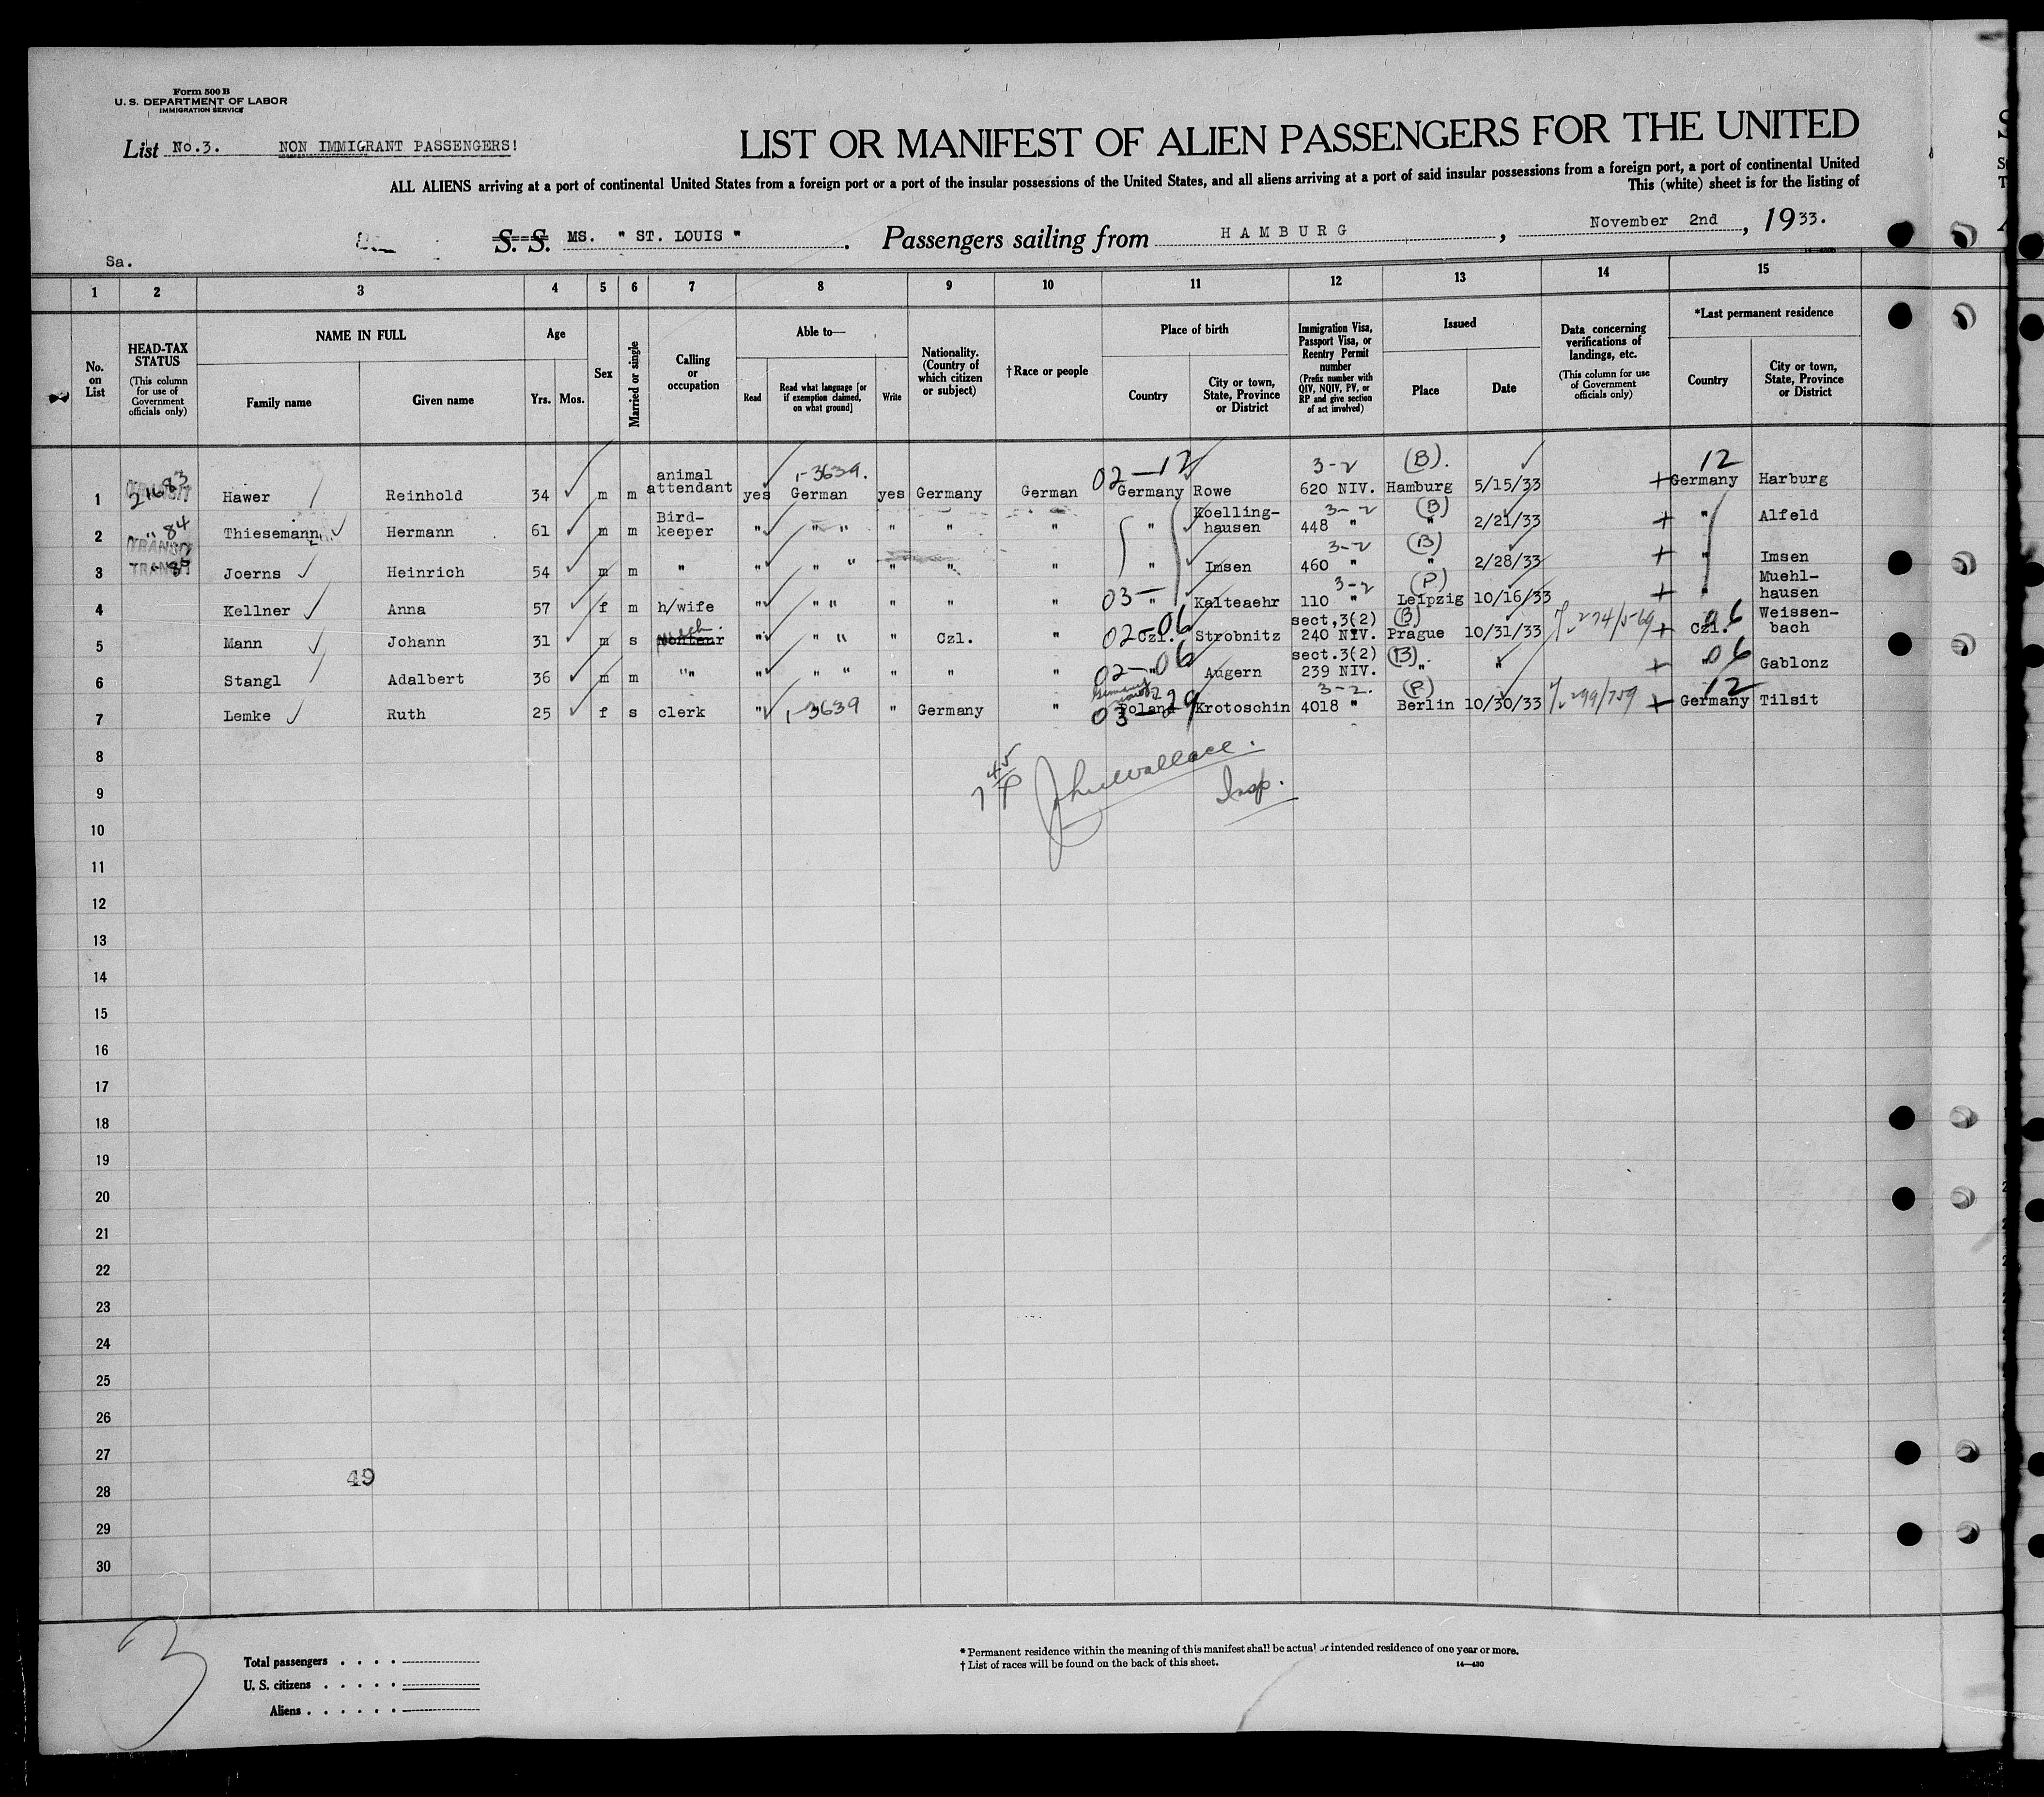 Form 500 B
U. S. DEPARTMENT OF LABOR
IMMIGRATION SERVICE
List No.3. NON IMMIGRANT PASSENGERS!
LIST OR MANIFEST OF ALIEN PASSENGERS FOR THE UNITED
ALL ALIENS arriving at a port of continental United States from a foreign port or a port of the insular possessions of the United States, and all aliens arriving at a port of said insular possessions from a foreign port, a port of continental United
This (white) sheet is for the listing of
S. S. MS. " ST. LOUIS " . Passengers sailing from HAMBURG , November 2nd , 1933.
Sa.
1 2 3 4 5 6 7 8 9 10 11 12 13 14 15
No. on List
HEAD-TAX STATUS
(This column for use of Government officials only)
NAME IN FULL
Family name
Given name
Age
Yrs. Mos.
Sex
Married or single
Calling or occupation
Able to—
Read
Read what language [or if exemption claimed, on what ground]
Write
Nationality. (Country of which citizen or subject)
†Race or people
Place of birth
Country
City or town, State, Province or District
Immigration Visa, Passport Visa, or Reentry Permit number
(Prefix number with QIV, NQIV, PV, or RP and give section of act involved)
Issued
Place
Date
Data concerning verifications of landings, etc.
(This column for use of Government officials only)
*Last permanent residence
Country
City or town, State, Province or District
1 21683 TRANSIT Hawer Reinhold 34 m m animal attendant yes 1-3639. German yes Germany German 02-12 Germany Rowe 3-2 620 NIV. (B). Hamburg 5/15/33 + 12 Germany Harburg
2 " 84 TRANSIT Thiesemann Hermann 61 m m Bird-keeper " " " " " " " Koelling-hausen 3-2 448 " (B) " 2/21/33 + " Alfeld
3 " 85 TRANSIT Joerns Heinrich 54 m m " " " " " " " " Imsen 3-2 460 " (B) " 2/28/33 + " Imsen
4 Kellner Anna 57 f m h/wife " " " " " " 03- " Kalteaehr 3-2 110 " (P) Leipzig 10/16/33 + Muehl-hausen
5 Mann Johann 31 m s Monteur mech. " " " " Czl. " 02-06 Czl. Strobnitz sect,3(2) 240 NIV. (B) Prague 10/31/33 + 06 Czl. Weissen-bach
6 Stangl Adalbert 36 m m " " " " " " " " 02-06 " Augern sect.3(2) 239 NIV. (B). " " + " 06 Gablonz
7 Lemke Ruth 25 f s clerk " 1-3639 " Germany " Germany 03-29 Poland Krotoschin 3-2. 4018 " (P) Berlin 10/30/33 + 12 Germany Tilsit
8
7 45 P John Wallace.
9
Insp.
10
11
12
13
14
15
16
17
18
19
20
21
22
23
24
25
26
27
49
28
29
30
3
Total passengers . . . .
U. S. citizens . . . . .
Aliens . . . . . .
* Permanent residence within the meaning of this manifest shall be actual or intended residence of one year or more.
† List of races will be found on the back of this sheet.
14—430